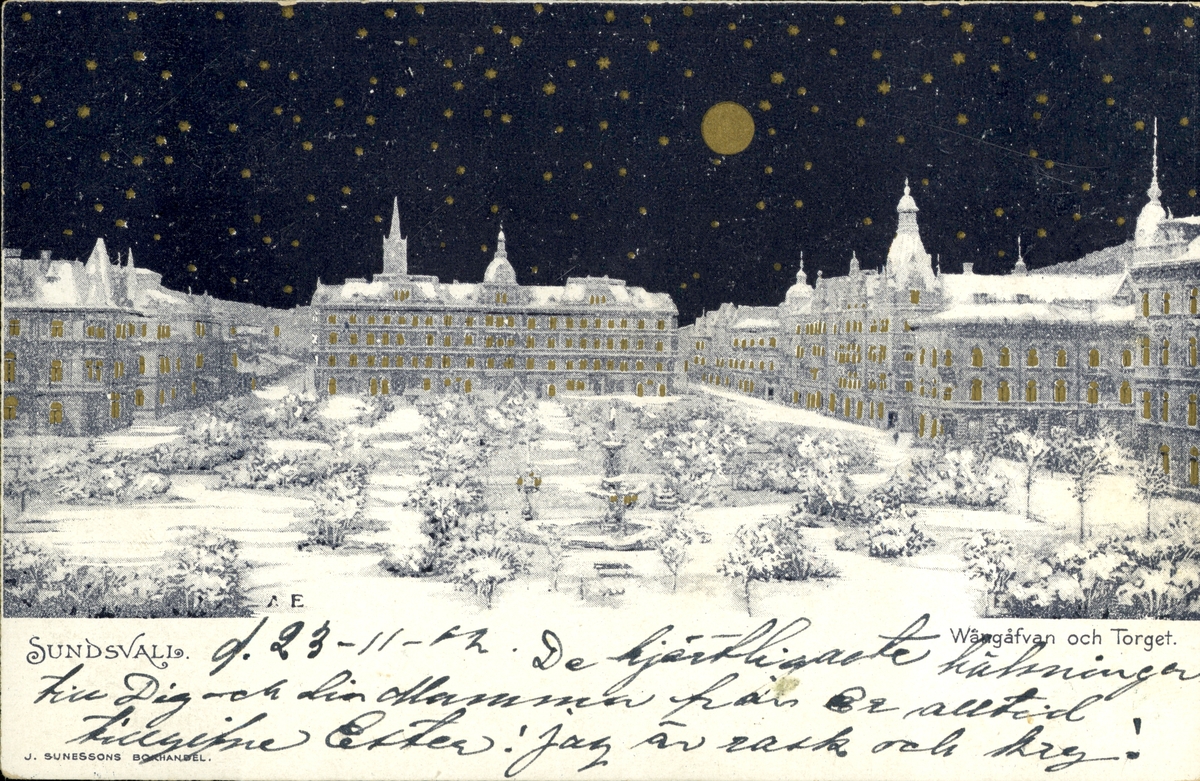 A E
SUNDSVALL.
Wängåfvan och Torget.
d. 23-11-02. De hjärtligaste hälsningar
till Dig och din Mamma från Er alltid
tillgifne Ester! Jag är rask och kry!
J. SUNESSONS BOKHANDEL.